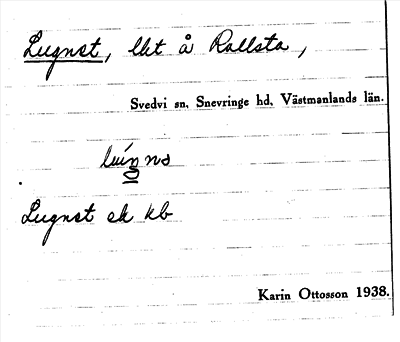 Lugnet, lht å Rallsta,
Svedvi sn, Snevringe hd, Västmanlands län.
Lugnet ek kb
Karin Ottosson 1938.